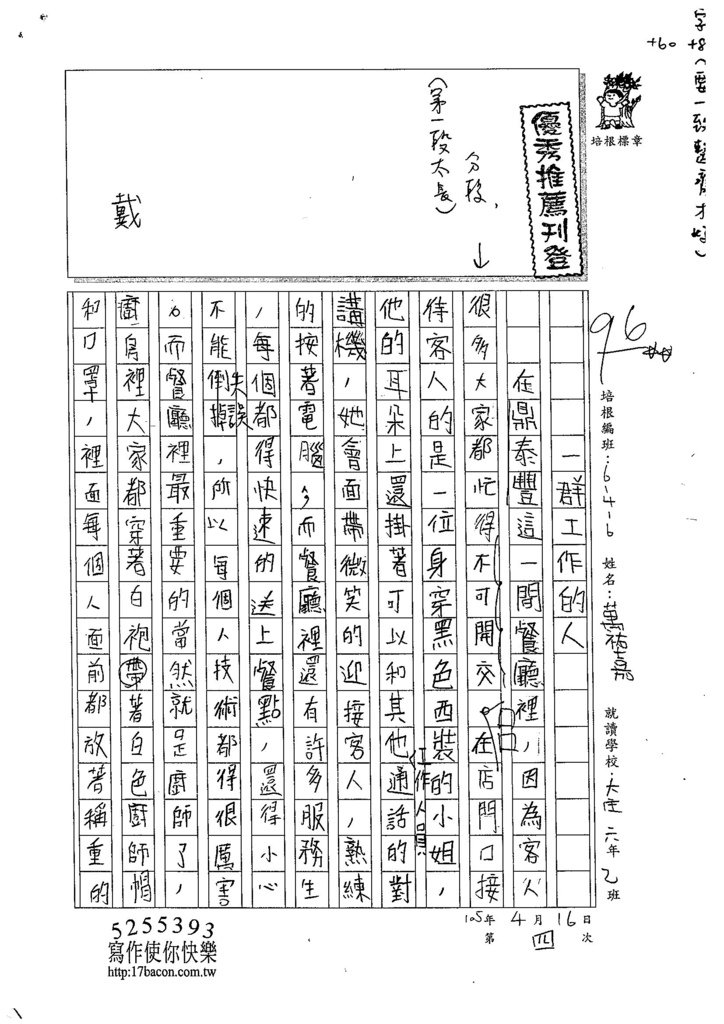 字+8(要一致整齊才好)
+60
培根標章
優秀推薦刊登
分段，↓
(第一段太長)
戴
96
培根編班：6-4-6 姓名：萬瑋嘉 就讀學校：大 六年乙班
105年4月16日
第四次
一群工作的人
在鼎泰豐這一間餐廳裡，因為客人
很多大家都忙得不可開交。在店門口接
待客人的是一位身穿黑色西裝的小姐，
他的耳朵上還掛著可以和其他工作人員通話的對
講機，她會面帶微笑的迎接客人，熟練
的按著電腦，而餐廳裡還有許多服務生
，每個都得快速的送上餐點，還得小心
不能失誤倒掉，所以每個人技術都得很厲害
。而餐廳裡最重要的當然就是廚師了，
廚房裡大家都穿著白袍帶著白色廚師帽
和口罩，裡面每個人面前都放著稱重的
5255393
寫作使你快樂
http:17bacon.com.tw